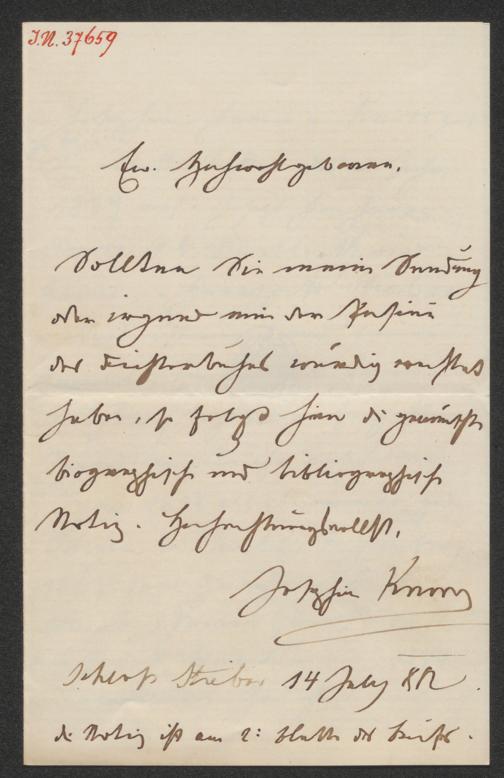 I.N. 37659
Ew. Hochwohlgeboren.
Sollten Sie meine Sendung
oder irgend eine der Poesieen
des Dichterbuches würdig erachtet
haben, so folgt hier die gewünschte
biographische und bibliographische
Notiz. Hochachtungsvollst,
Josephine Knorr
Schloß Stiebar 14 July 882.
die Notiz ist am 2: Blatte des Briefes.